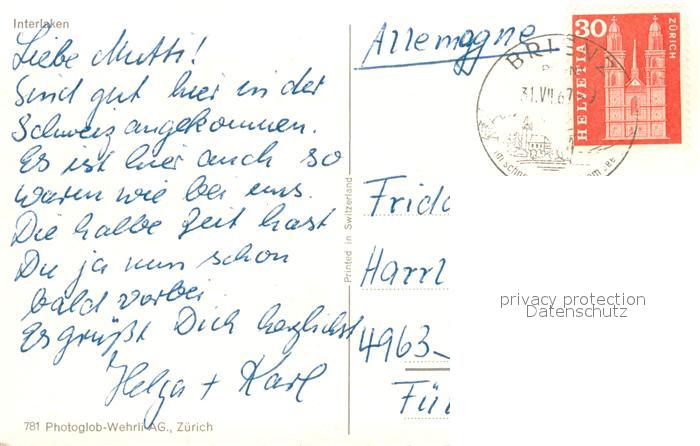 Interlaken
Liebe Mutti!
Sind gut hier in der
Schweiz angekommen.
Es ist hier auch so
warm wie bei uns.
Die halbe Zeit hast
Du ja nun schon
bald vorbei
Es grüßt Dich herzlichst
Helga + Karl
781 Photoglob-Wehrli AG., Zürich
Printed in Switzerland
Allemagne
BRIENZ
31.VII.67
30
HELVETIA
ZÜRICH
Frid
Harrl
privacy protection
Datenschutz
4963
Für